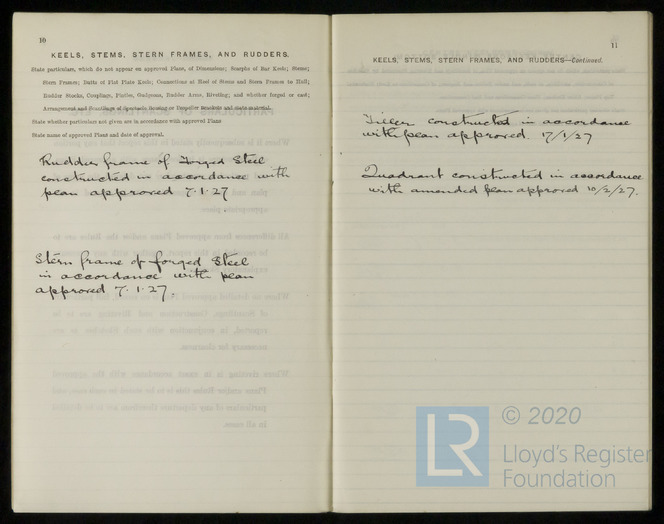 10
KEELS, STEMS, STERN FRAMES, AND RUDDERS.
State particulars, which do not appear on approved Plans, of Dimensions; Scarphs of Bar Keels; Stems;
Stern Frames; Butts of Flat Plate Keels; Connections at Heel of Stems and Stern Frames to Hull;
Rudder Stocks, Couplings, Pintles, Gudgeons, Rudder Arms, Riveting; and whether forged or cast;
Arrangement and Scantlings of Spectacle Bossing or Propeller Brackets and state material.
State whether particulars not given are in accordance with approved Plans
State name of approved Plans and date of approval.
Rudder frame of Forged Steel
constructed in accordance with
plan approved 7.1.27
Stern frame of forged Steel
in accordance with plan
approved 7.1.27.
11
KEELS, STEMS, STERN FRAMES, AND RUDDERS—Continued.
Tiller constructed in accordance
with plan approved. 17/1/27
Quadrant constructed in accordance
with amended plan approved 10/2/27.
LR
© 2020
Lloyd's Register
Foundation